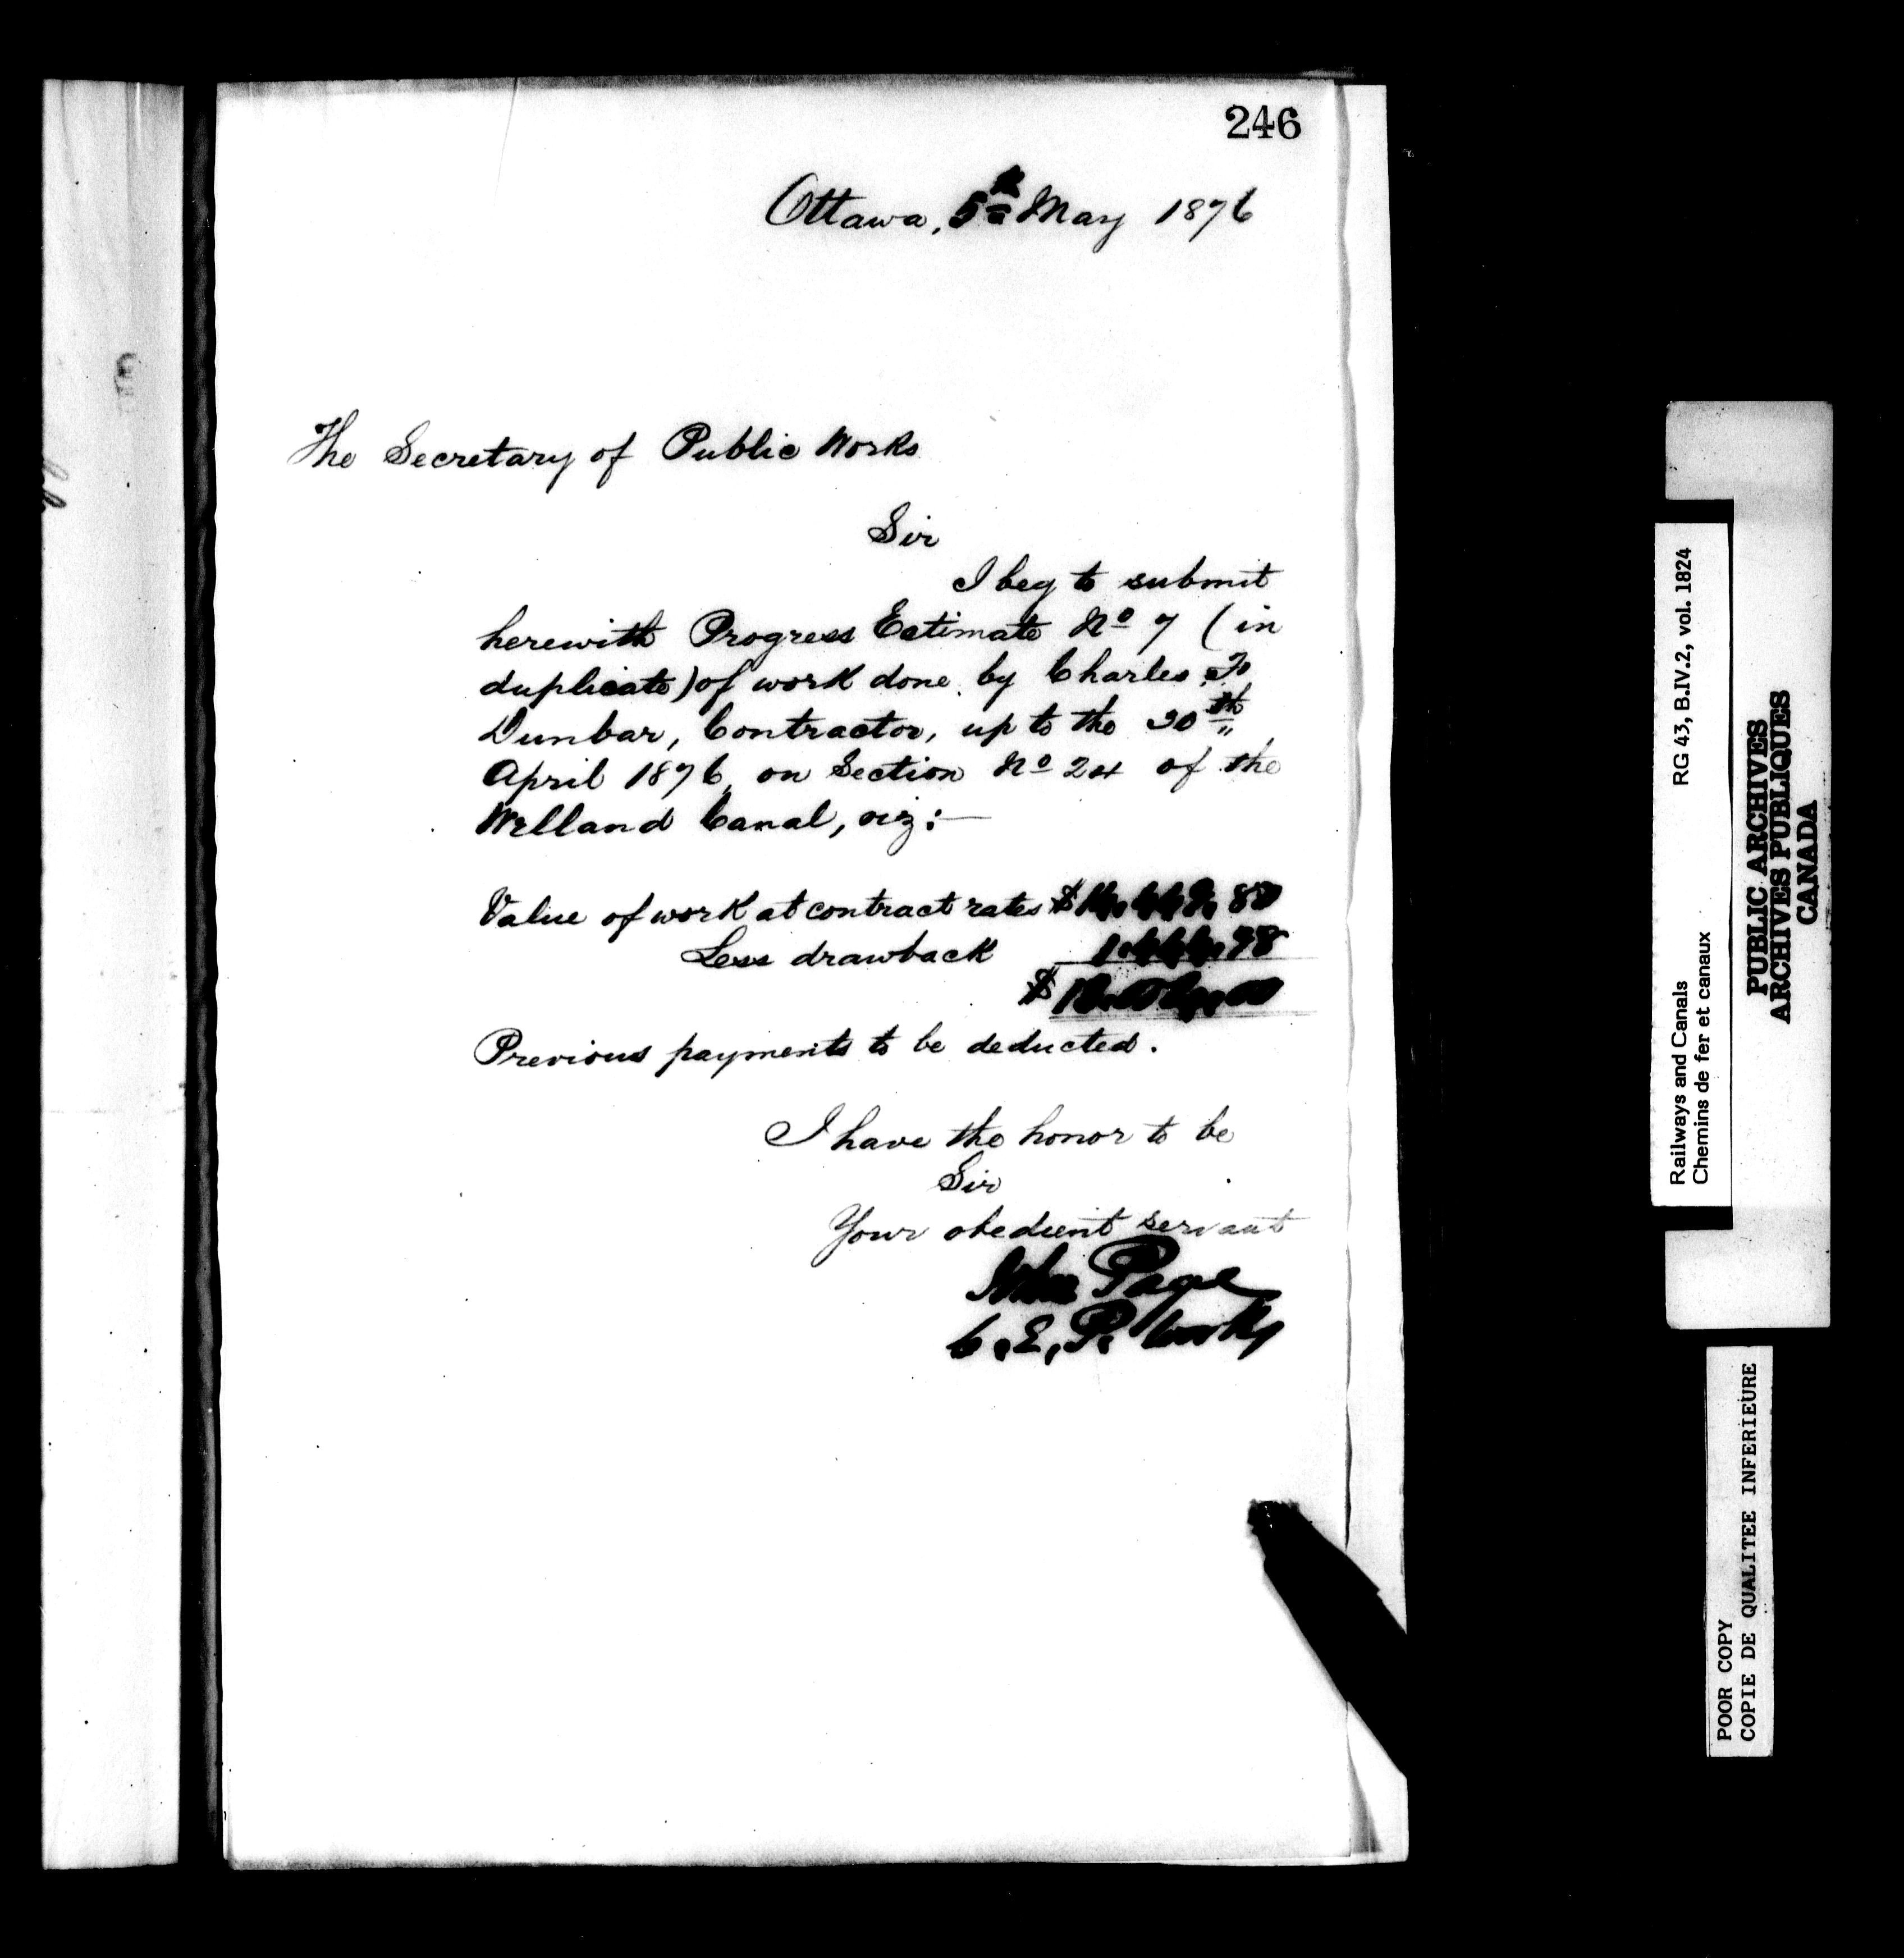 246
Ottawa, 5th May 1876
The Secretary of Public Works
Sir
I beg to submit
herewith Progress Estimate No 7 (in
duplicate) of work done by Charles F.
Dunbar, Contractor, up to the 30th
April 1876, on Section No 24 of the
Welland Canal, viz:—
Value of work at contract rates $
Less drawback
$
Previous payments to be deducted.
I have the honor to be
Sir
Your obedient servant
John Page
C. E. P. Works
Railways and Canals RG 43, B.IV.2, vol. 1824
Chemins de fer et canaux
PUBLIC ARCHIVES
ARCHIVES PUBLIQUES
CANADA
POOR COPY
COPIE DE QUALITEE INFERIEURE